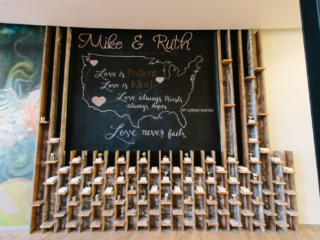 Mike & Ruth
Love is Patient
Love is Kind
Love always trusts
always hopes
Love never fails